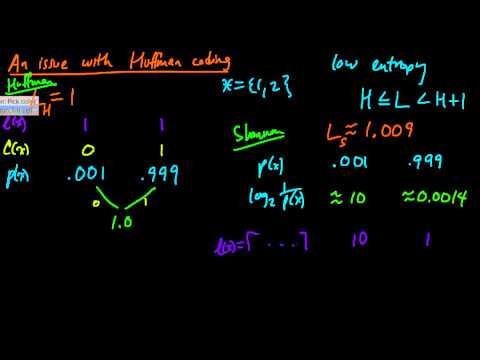 An issue with Huffman coding
Huffman
L_H = 1
l(x) 1 1
C(x) 0 1
p(x) .001 .999
0 1
1.0
X = {1,2}
low entropy
H ≤ L < H+1
Shannon
L_S ≈ 1.009
p(x) .001 .999
log₂ 1/p(x) ≈ 10 ≈ 0.0014
l(x) = ⌈ . . . . ⌉ 10 1